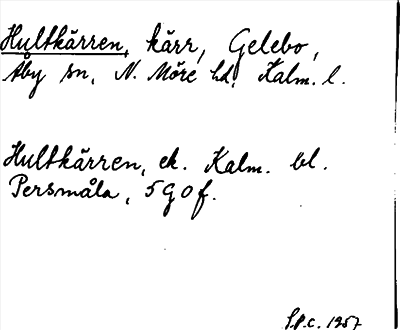 Hultkärren, kärr, Gelebo,
Åby sn, N. Möre hd, Kalm. l.
Hultkärren, ek. Kalm. bl.
Persmåla, 5 G 0 f.
S.P.C. 1957